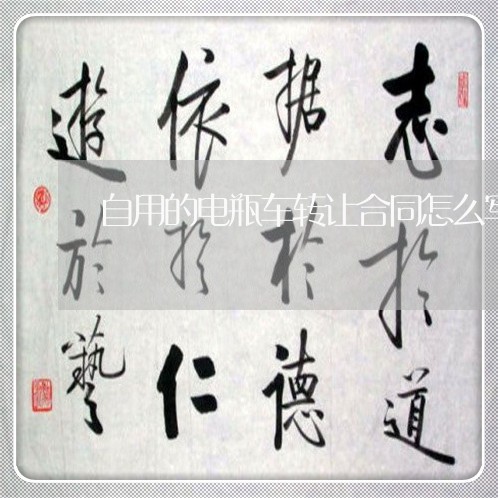 志於道
据於德
依於仁
遊於藝
自用的电瓶车转让合同怎么写